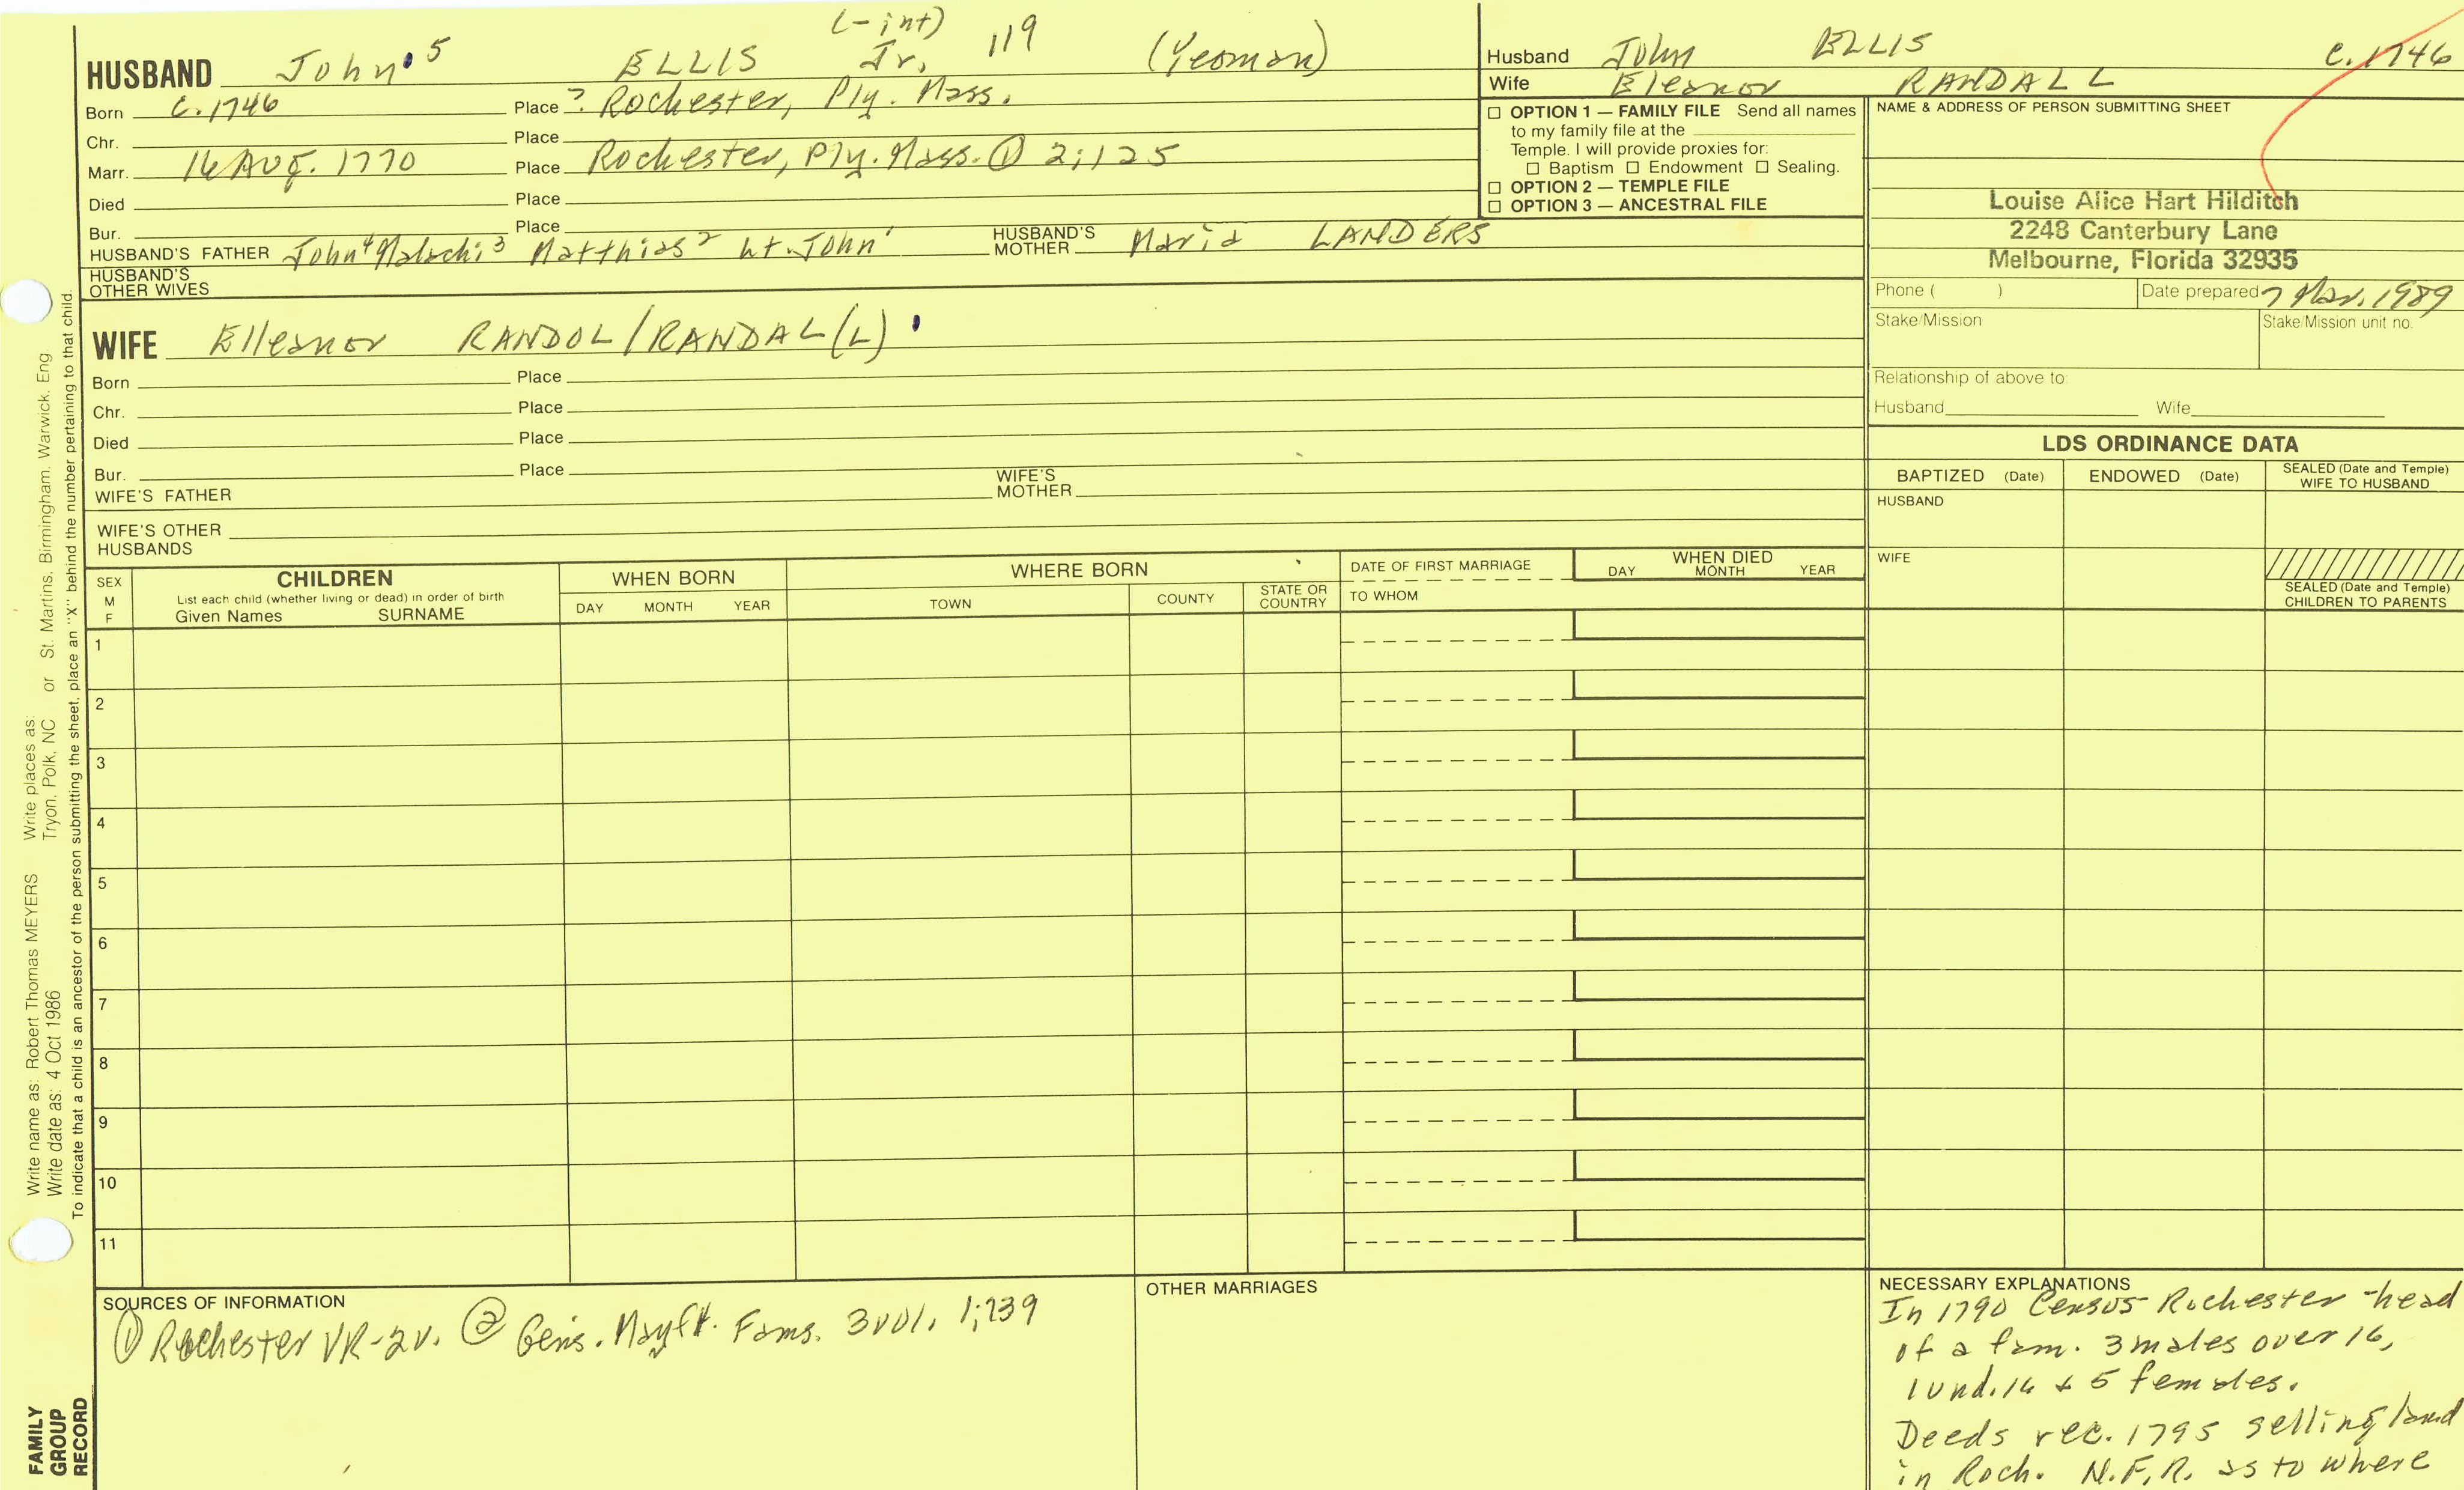 (-int)
HUSBAND John 5 ELLIS Jr. 119 (Yeoman)
Born c.1746 Place ? Rochester, Ply. Mass.
Chr. Place
Marr. 16 Aug. 1770 Place Rochester, Ply. Mass. ① 2;125
Died Place
Bur. Place
HUSBAND'S FATHER John4 Malachi3 Matthias2 Lt. John1 HUSBAND'S MOTHER Maria LANDERS
HUSBAND'S OTHER WIVES
WIFE Elleanor RANDOL/RANDAL(L)
Born Place
Chr. Place
Died Place
Bur. Place
WIFE'S FATHER WIFE'S MOTHER
WIFE'S OTHER HUSBANDS
Husband John ELLIS c.1746
Wife Eleanor RANDALL
☐ OPTION 1 — FAMILY FILE Send all names
to my family file at the
Temple. I will provide proxies for:
☐ Baptism ☐ Endowment ☐ Sealing.
☐ OPTION 2 — TEMPLE FILE
☐ OPTION 3 — ANCESTRAL FILE
NAME & ADDRESS OF PERSON SUBMITTING SHEET
Louise Alice Hart Hilditch
2248 Canterbury Lane
Melbourne, Florida 32935
Phone ( ) Date prepared 7 Mar. 1989
Stake/Mission Stake/Mission unit no.
Relationship of above to:
Husband Wife
LDS ORDINANCE DATA
BAPTIZED (Date) ENDOWED (Date) SEALED (Date and Temple) WIFE TO HUSBAND
HUSBAND
WIFE
SEALED (Date and Temple)
CHILDREN TO PARENTS
SEX M F
CHILDREN
List each child (whether living or dead) in order of birth
Given Names SURNAME
WHEN BORN
DAY MONTH YEAR
WHERE BORN
TOWN COUNTY STATE OR COUNTRY
DATE OF FIRST MARRIAGE
TO WHOM
WHEN DIED
DAY MONTH YEAR
1
2
3
4
5
6
7
8
9
10
11
SOURCES OF INFORMATION
① Rochester VR-2v. ② Gen's. Mayfl. Fams. 3vol. 1;739
OTHER MARRIAGES
NECESSARY EXPLANATIONS
In 1790 Census Rochester-head
of a fam. 3 males over 16,
1 und. 16 + 5 females.
Deeds rec. 1795 selling land
in Roch. N.F.R. as to where
Write name as: Robert Thomas MEYERS Write places as: St. Martins, Birmingham, Warwick, Eng
Write date as: 4 Oct 1986 Tryon, Polk, NC or
To indicate that a child is an ancestor of the person submitting the sheet, place an "X" behind the number pertaining to that child.
FAMILY
GROUP
RECORD